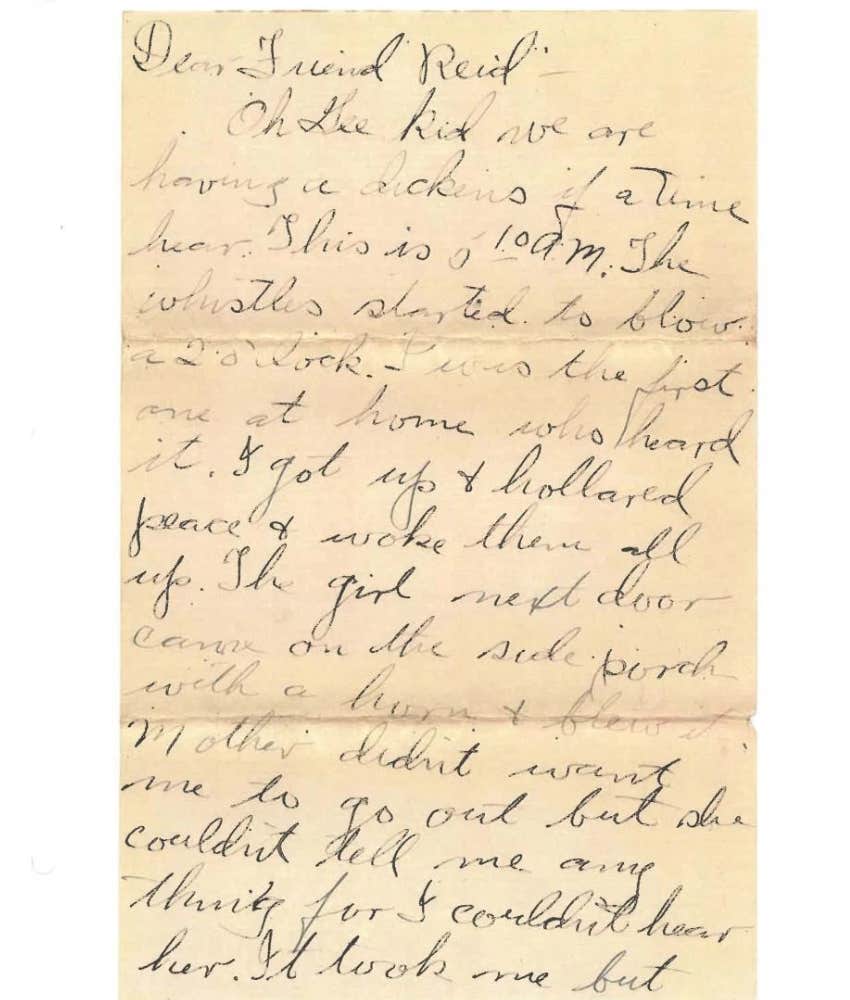 Dear Friend "Reid" -
Oh Gee kid we are
having a dickens of a Time
hear. This is 5 10 A.M. The
whistles started to blow
a 2 o'clock. I was the first
one at home who heard
it. I got up & hollared
peace & woke them all
up. The girl next door
came on the side porch
with a horn & blew it
Mother didn't want
me to go out but she
couldn't tell me any
thing for I couldn't hear
her. It took me but